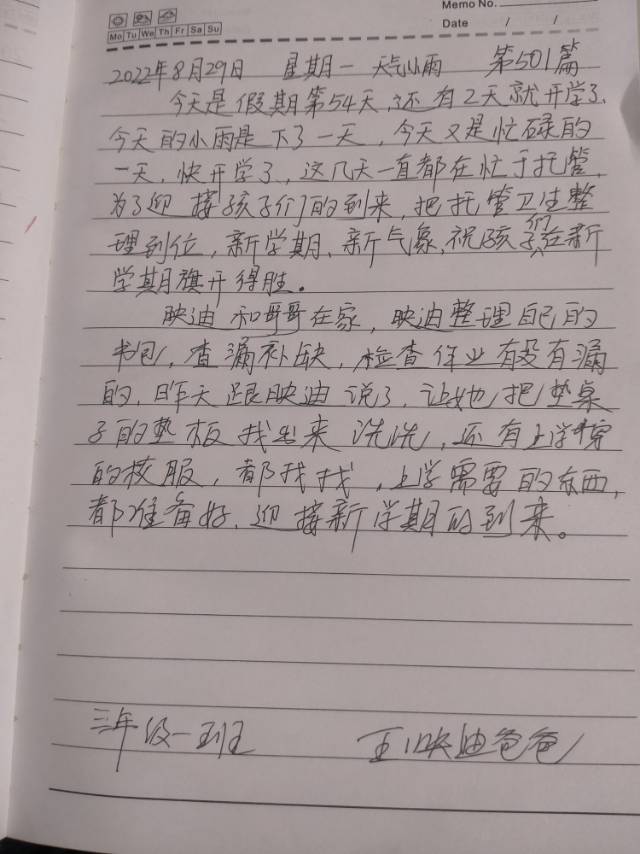 Memo No.
Mo Tu We Th Fr Sa Su
Date / /
2022年8月29日 星期一 天气小雨 第501篇
今天是假期第54天,还有2天就开学了,
今天的小雨是下了一天,今天又是忙碌的
一天,快开学了,这几天一直都在忙于托管,
为了迎接孩子们的到来,把托管卫生整
理到位,新学期、新气象,祝孩子们在新
学期旗开得胜。
映迪和哥哥在家,映迪整理自己的
书包,查漏补缺,检查作业有没有漏
的,昨天跟映迪说了,让她把垫桌
子的垫板找出来洗洗,还有上学穿
的校服,都找找,上学需要的东西,
都准备好,迎接新学期的到来。
三年级一班 王映迪爸爸